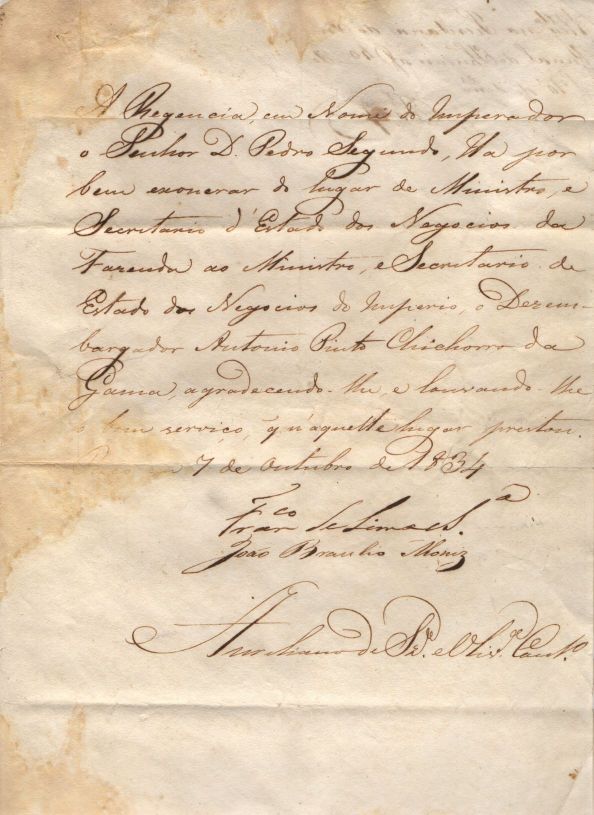 A Regencia, em Nome do Imperador
o Senhor D. Pedro Segundo, Ha por
bem exonerar do lugar de Ministro, e
Secretario d'Estado dos Negocios da
Fazenda ao Ministro, e Secretario de
Estado dos Negocios do Imperio, o Dezem-
bargador Antonio Pinto Chichorro da
Gama, agradecendo-lhe, e louvando-lhe,
o bom serviço, q' n'aquelle lugar prestou.
7 de Outubro de 1834
Fran.co de Lima e S.a
João Braulio Moniz
Aureliano de Sz.a e Oliv.a Cout.o